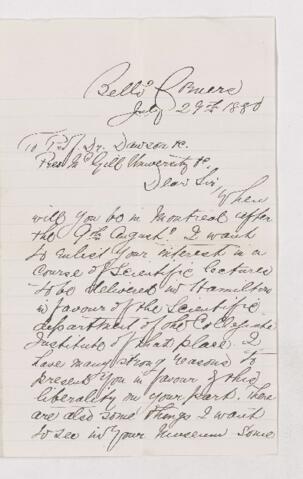 Bells Corners
July 29th 1880
To Prof. Dr. Dawson &c.
Pres. McGill University &c
Dear Sir,
When
will you be in Montreal after
the 9th August. I want
to enlist your interest in a
course of Scientific lectures
to be delivered in Hamilton
in favour of the Scientific
department of the
Institute of that place. I
have many strong reasons to
present you in favour of this
liberality on your part. There
are also some things I want
to see in your Museum some